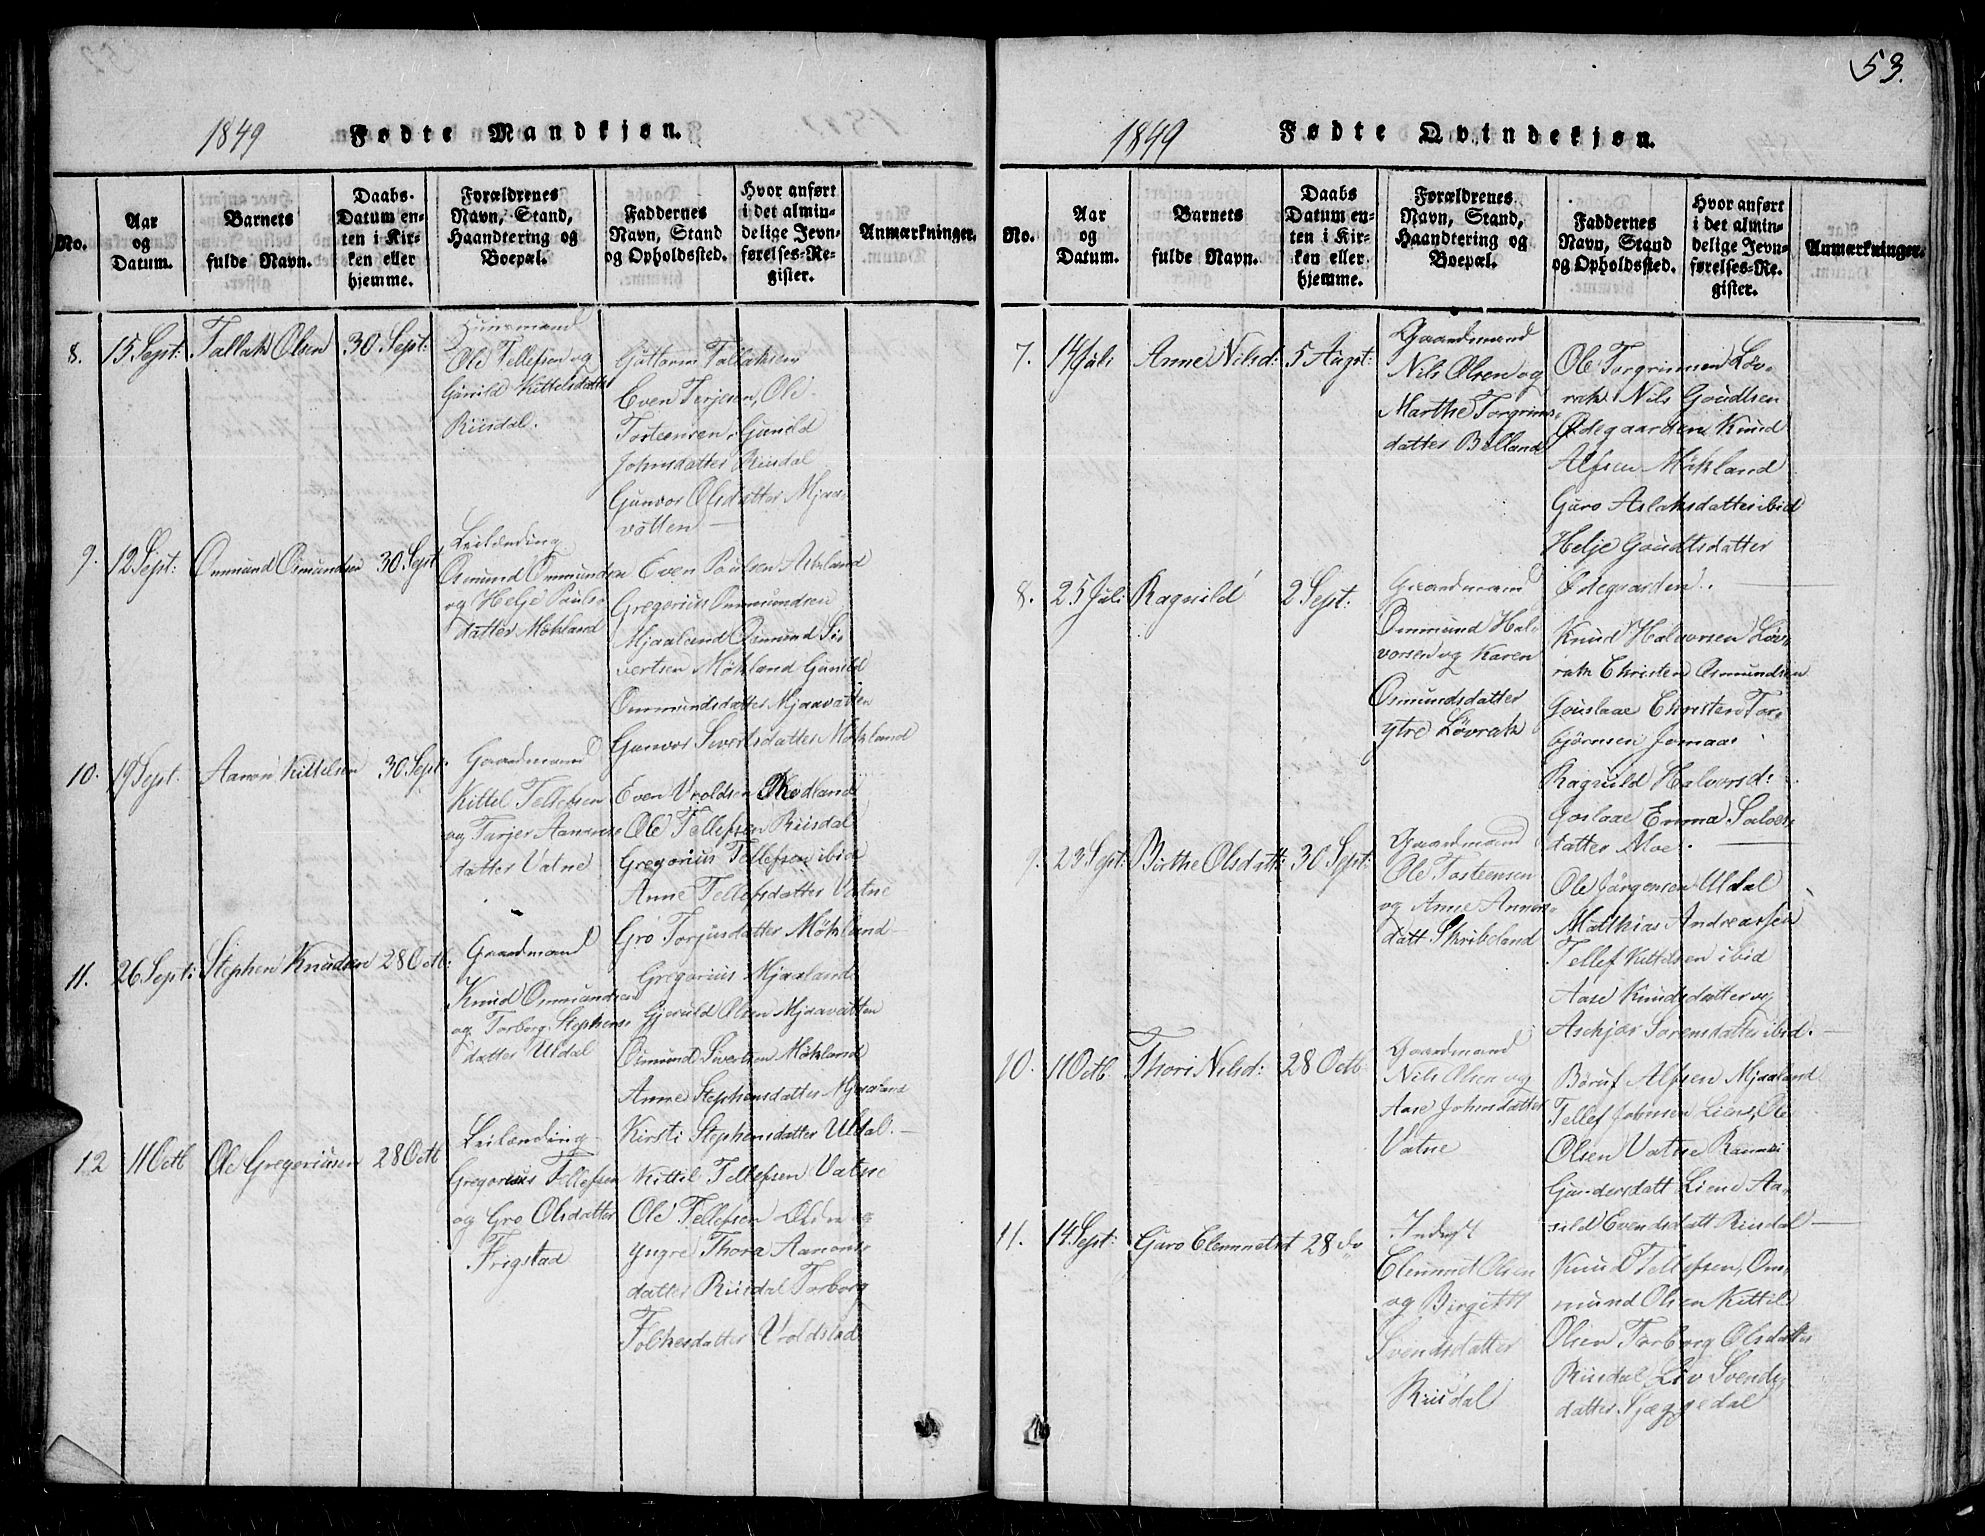 1849 Fødte Mandkjøn.
No.
Aar
og
Datum.
Barnets
fulde Navn.
Daabs-
Datum en-
ten i Kir-
ken eller
hjemme.
Forældrenes
Navn, Stand,
Haandtering og
Boepæl.
Faddernes
Navn, Stand
og Opholdssted.
Hvor anført
i det almin-
delige Jevn-
førelses-Re-
gister.
Anmærkninger.
8. 15 Sept: Tallak Olsen 30 Sept:
Huusmand
Ole Tellefsen og
Gunild Kittelsdatter
Riisdal.
Guttorm Tallaksen
Even Terjesen, Ole
Torsteensen, Gunild
Johnsdatter Riisdal
Gunvor Olsdatter Mjaa-
vatten
9. 12 Sept: Ommund Osmundsen 30 Sept
Leilænding
Osmund Ommundsen
og Helje Pauls-
datter Mökland
Even Paulsen Askland
Gregorius Ommundsen
Mjaaland Osmund Si-
vertsen Mökland Gunild
Ommundsdatter Mjaavatten
Gunvor Sivertsdatter Mökland
10. 19 Sept. Aanon Kittelsen 30 Sept.
Gaardmand
Kittel Tellefsen
og Torjer Aanons-
datter Vatne
Even Vroldsen Rodland
Ole Tellefsen Riisdal
Gregorius Tellefsen ibid
Anne Tellefsdatter Vatne
Gro Torjusdatter Mökland
11. 26 Sept: Stephen Knudsen 28 Octb:
Gaardmand
Knud Ommundsen
og Torborg Stephens-
datter Uldal
Gregorius Mjaaland
Gjeruld Olsen Mjaavatten
Osmund Sivertsen Mökland
Anne Stephensdatter Mjaaland
Kirsti Stephensdatter Uldal.
12 11 Octb Ole Gregoriusen 28 Octb
Leilænding
Gregorius Tellefsen
og Gro Olsdatter
Frigstad
Kittil Tellefsen Vatne
Ole Tellefsen Eldre og
Yngre Thora Aanons-
datter Riisdal Torborg
Folkesdatter Vroldstad
53.
1849 Fødte Qvindekjøn.
No.
Aar
og
Datum.
Barnets
fulde Navn.
Daabs
Datum en-
ten i Kir-
ken eller
hjemme.
Forældrenes
Navn, Stand,
Haandtering og
Boepæl.
Faddernes
Navn, Stand
og Opholdssted.
Hvor anført
i det almin-
delige Jevn-
førelses-Re-
gister.
Anmærkninger.
7. 14 Juli Anne Nilsd: 5 Augst:
Gaardmand
Nils Olsen og
Marthe Torgrims-
datter Belland
Ole Torgrimsen Löv-
rak. Nils Goudtsen
Ödegaarden Knud
Alfsen Mökland
Guro Aslaksdatter ibid
Helje Goudtsdatter
Ödegaarden.
8. 25 Juli Ragnild 2 Sept:
Gaardmand
Ommund Hal-
vorsen og Karen
Osmundsdatter
ytre Lövrak
Knud Halvorsen Löv-
rak Christen Osmundsen
Gouslaae Christen Tor-
björnsen Jomaas
Ragnild Halvorsd:
Goslaae Emma Salves-
datter Moe.
9. 23 Sept: Birthe Olsdatt: 30 Sept:
Gaardmand
Ole Torsteensen
og Anne Annens-
datt Skribeland
Ole Jörgensen Uldal
Matthias Andreassen
Tellef Kittelsen ibid
Aase Knudsdatter og
Aschjer Sorensdatter ibid.
10. 11 Octb. Thori Nilsd: 28 Octb.
Gaardmand
Nils Olsen og
Aase Johnsdatter
Vatne
Böruf Alfsen Mjaaland
Tellef Jobnsen Liene, Ole
Olsen Vatne Rannei
Gundersdatt Liene Aa-
sild Evendsdatt Riisdal
11. 14 Sept: Guro Clemmetsd 28 do
Inderst
Clemmet Olsen
og Birgitt
Svendsdatter
Riisdal
Knud Tellefsen, Om-
mund Olsen Kittil
Olsen Torborg Olsdatter
Riisdal Liv Svends-
datter Sjæggedal